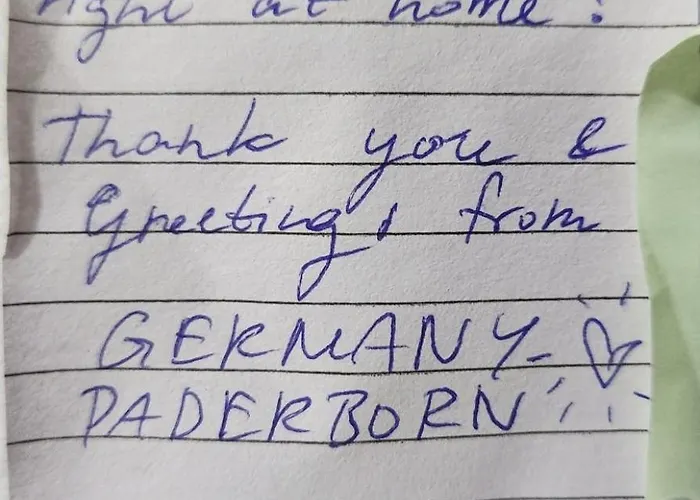 right at home!
Thank you &
Greetings from
GERMANY-
PADERBORN